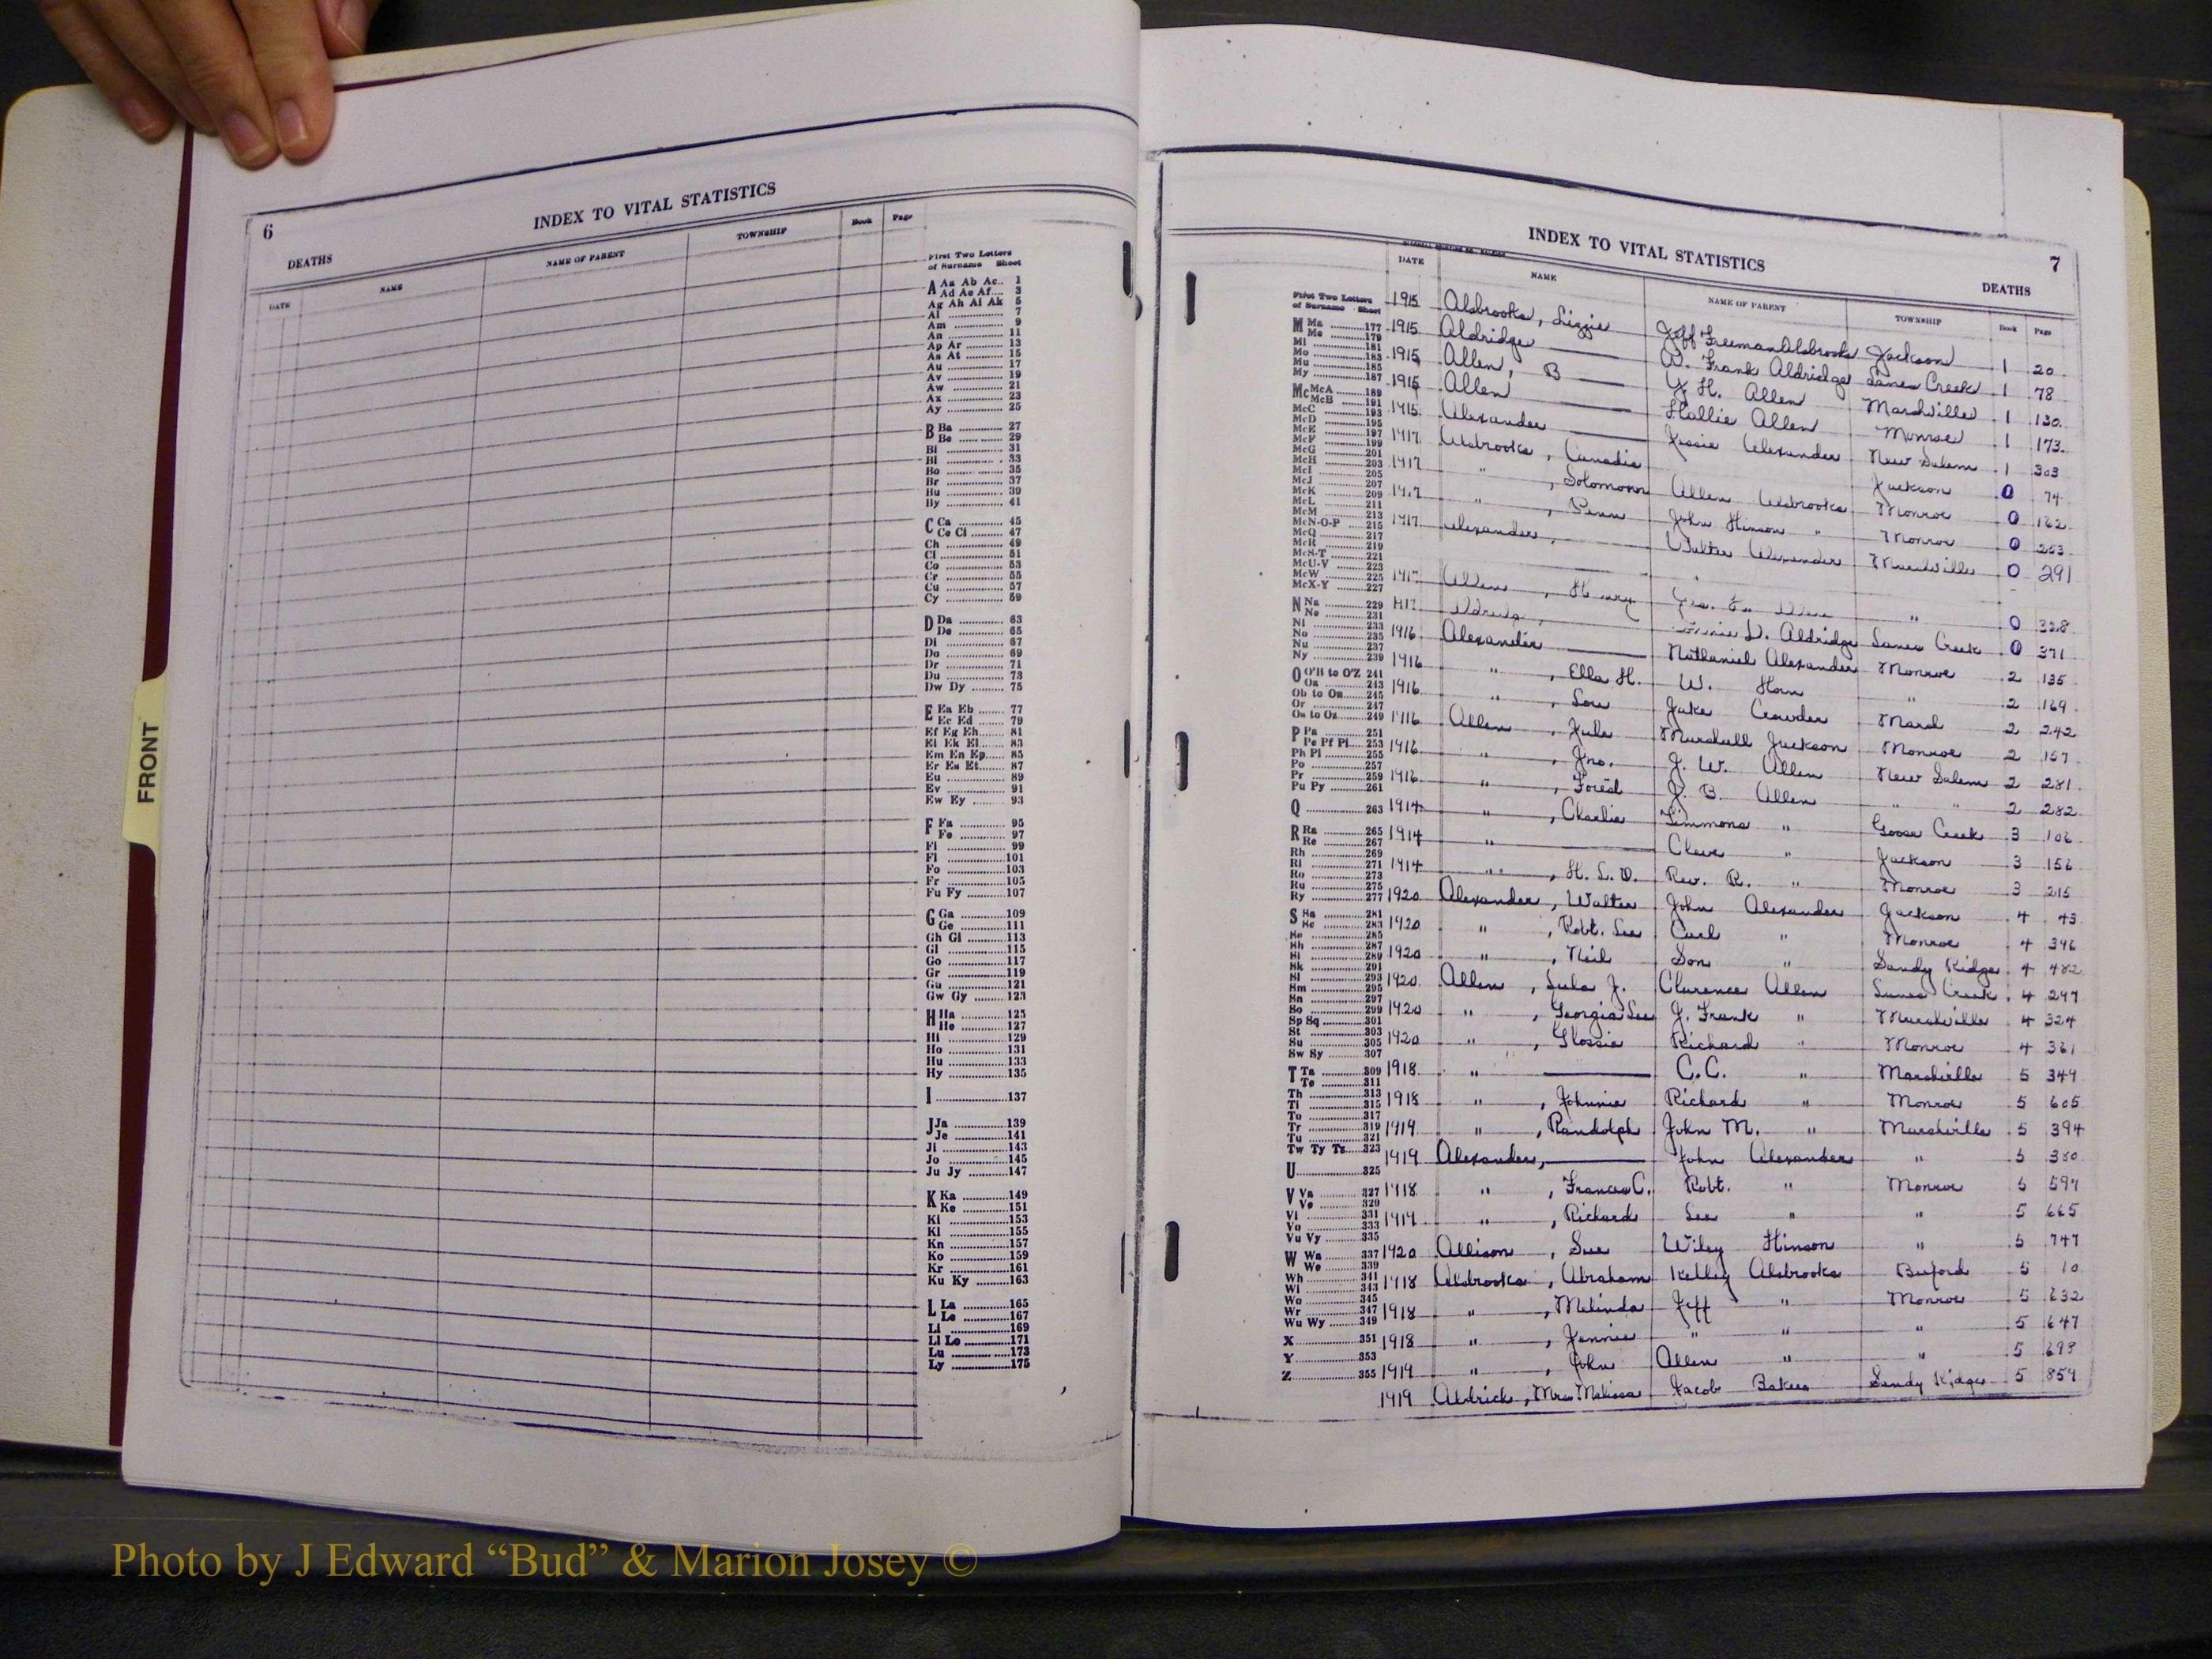 6
INDEX TO VITAL STATISTICS
DEATHS
DATE NAME NAME OF PARENT TOWNSHIP Book Page
First Two Letters
of Surname Sheet
A Aa Ab Ac.. 1
Ad Ae Af.... 3
Ag Ah Ai Ak 5
Al ............ 7
Am ............ 9
An ............ 11
Ap Ar ............ 13
As At ............ 15
Au ............ 17
Av ............ 19
Aw ............ 21
Ax ............ 23
Ay ............ 25
B Ba ............ 27
Be ............ 29
Bi ............ 31
Bl ............ 33
Bo ............ 35
Br ............ 37
Bu ............ 39
By ............ 41
C Ca ............ 45
Ce Ci ........ 47
Ch ............ 49
Cl ............ 51
Co ............ 53
Cr ............ 55
Cu ............ 57
Cy ............ 59
D Da ............ 63
De ............ 65
Di ............ 67
Do ............ 69
Dr ............ 71
Du ............ 73
Dw Dy ......... 75
E Ea Eb ....... 77
Ec Ed ....... 79
Ef Eg Eh...... 81
Ei Ek El...... 83
Em En Ep..... 85
Er Es Et...... 87
Eu ............ 89
Ev ............ 91
Ew Ey ........ 93
F Fa ............ 95
Fe ............ 97
Fi ............ 99
Fl ............101
Fo ............103
Fr ............105
Fu Fy .........107
G Ga ............109
Ge ............111
Gh Gi .........113
Gl ............115
Go ............117
Gr ............119
Gu ............121
Gw Gy ........123
H Ha ............125
He ............127
Hi ............129
Ho ............131
Hu ............133
Hy ............135
I ..................137
J Ja ............139
Je ............141
Ji ............143
Jo ............145
Ju Jy .........147
K Ka ............149
Ke ............151
Ki ............153
Kl ............155
Kn ............157
Ko ............159
Kr ............161
Ku Ky .........163
L La ............165
Le ............167
Li ............169
Ll Lo ............171
Lu ............173
Ly ............175
FRONT
INDEX TO VITAL STATISTICS
7
DEATHS
DATE NAME NAME OF PARENT TOWNSHIP Book Page
First Two Letters
of Surname Sheet
M Ma ........177
Me ........179
Mi ........181
Mo ........183
Mu ........185
My ........187
Mc McA ......189
McB ......191
McC ........193
McD ........195
McE ........197
McF ........199
McG ........201
McH ........203
McI ........205
McJ ........207
McK ........209
McL ........211
McM ........213
McN-O-P ......215
McQ ........217
McR ........219
McS-T ........221
McU-V ........223
McW ........225
McX-Y ........227
N Na ........229
Ne ........231
Ni ........233
No ........235
Nu ........237
Ny ........239
O O'B to O'Z 241
Oa ........243
Ob to On......245
Or ........247
Os to Oz......249
P Pa ........251
Pe Pf Pi....253
Ph Pl ........255
Po ........257
Pr ........259
Pu Py ........261
Q ........263
R Ra ........265
Re ........267
Rh ........269
Ri ........271
Ro ........273
Ru ........275
Ry ........277
S Sa ........281
Sc ........283
Se ........285
Sh ........287
Si ........289
Sk ........291
Sl ........293
Sm ........295
Sn ........297
So ........299
Sp Sq ........301
St ........303
Su ........305
Sw Sy ........307
T Ta ........309
Te ........311
Th ........313
Ti ........315
To ........317
Tr ........319
Tu ........321
Tw Ty Tz......323
U ........325
V Va ........327
Ve ........329
Vi ........331
Vo ........333
Vu Vy ........335
W Wa ........337
We ........339
Wh ........341
Wi ........343
Wo ........345
Wr ........347
Wu Wy ........349
X ........351
Y ........353
Z ........355
1915 Alsbrooks, Lizzie Jeff Freeman Alsbrooks Jackson 1 20
1915 Aldridge W. Frank Aldridge Lanes Creek 1 78
1915 Allen, B H. Allen Marshville 1 130
1915 Allen Hallie Allen Monroe 1 173
1915 Alexander Jessie Alexander New Salem 1 303
1917 Alsbrooks, Canadie Jackson 0 74
1917 " , Solomon Allen Alsbrooks Monroe 0 162
1917 " , Penn John Hinson " Monroe 0 253
1917 Alexander, Walter Alexander Marshville 0 291
1917 Allen, Henry " 0 328
1917 D. Aldridge Lanes Creek 0 371
1916 Alexander Nathaniel Alexander Monroe 2 135
1916 " , Ella H. W. Horn " 2 169
1916 " , Lou Jake Crowder Marsh 2 242
1916 Allen, Jule Marshall Jackson Monroe 2 157
1916 " , Jno. J. W. Allen New Salem 2 281
1916 " , Forest J. B. Allen " " 2 282
1914 " , Charlie Simmons " Goose Creek 3 106
1914 " Cleve " Jackson 3 156
1914 " , H. L. D. Rev. R. " Monroe 3 215
1920 Alexander, Walter John Alexander Jackson 4 43
1920 " , Robt. Lee Carl " Monroe 4 396
1920 " , Neil Son " Sandy Ridge 4 482
1920 Allen, Lula J. Clarence Allen Lanes Creek 4 297
1920 " , Georgia Lee J. Frank " Marshville 4 324
1920 " , Glossie Richard " Monroe 4 361
1918 " C.C. " Marshville 5 349
1918 " , Johnnie Richard " Monroe 5 605
1919 " , Randolph John M. " Marshville 5 394
1919 Alexander, John Alexander " 5 380
1918 " , Frances C. Robt. " Monroe 5 597
1919 " , Richard Lee " " 5 665
1920 Allison, Sue Wiley Hinson " 5 747
1918 Alsbrooks, Abraham Kelley Alsbrooks Buford 5 10
1918 " , Melinda Jeff " Monroe 5 632
1918 " , Jennie " " " 5 647
1919 " , John Allen " " 5 693
1919 Aldrich, Mrs. Melissa Jacob Baker Sandy Ridge 5 859
Photo by J Edward “Bud” & Marion Josey ©